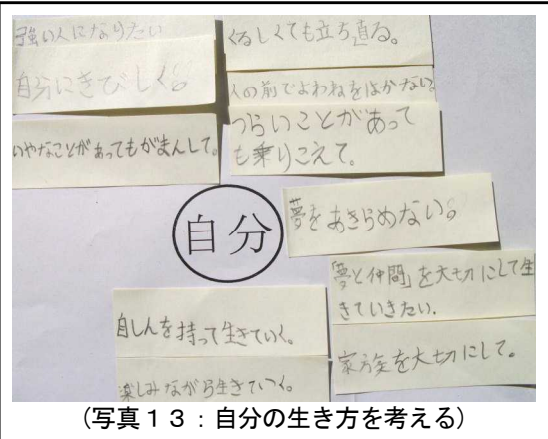 強い人になりたい
自分にきびしく。
いやなことがあってもがまんして。
くるしくても立ち直る。
人の前でよわねをはかない。
つらいことがあって
も乗りこえて。
自分
夢をあきらめない。
「夢と仲間」を大切にして生
きていきたい.
家族を大切にして。
自しんを持って生きていく。
楽しみながら生きていく。
(写真13:自分の生き方を考える)